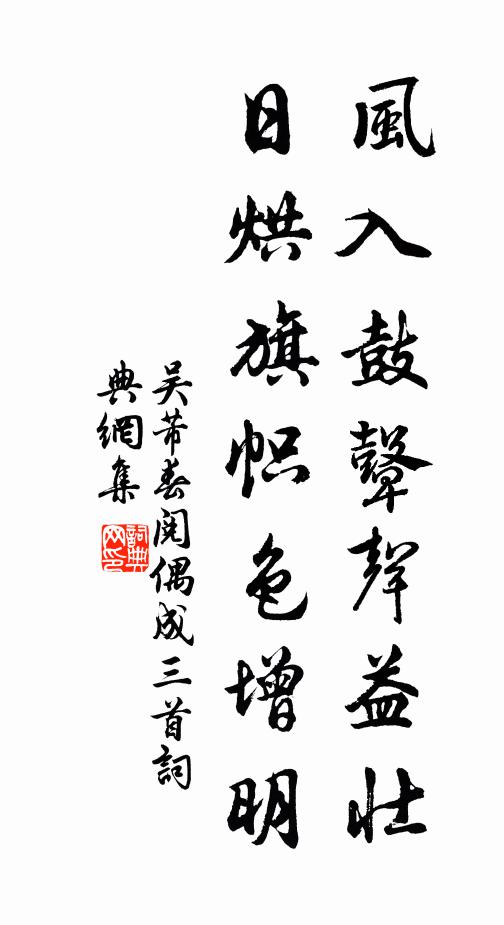 風入鼓鼙聲益壯
日烘旗帜色增明
吴芾春閱偶成三首詞
典網集
詞典
网印